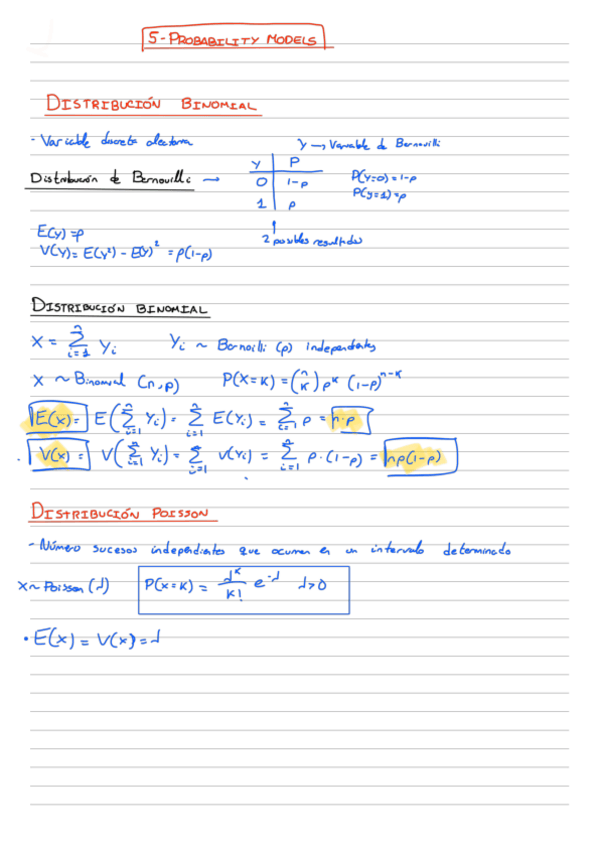 5-PROBABILITY MODELS
DISTRIBUCIÓN BINOMIAL
- Variable discreta aleatoria
Y → Variable de Bernouilli
Distribución de Bernouilli →
Y P
0 1-p
1 p
P(Y=0)=1-p
P(Y=1)=p
2 posibles resultados
E(Y)=p
V(Y)= E(Y²) - E(Y)² = p(1-p)
DISTRIBUCIÓN BINOMIAL
X = Σⁿᵢ₌₁ Yᵢ Yᵢ ~ Bernoilli (p) independientes
X ~ Binomial (n,p) P(X=K) = (n K) pᴷ (1-p)ⁿ⁻ᴷ
E(x)= E(Σⁿᵢ₌₁ Yᵢ)= Σⁿᵢ₌₁ E(Yᵢ) = Σⁿᵢ₌₁ p = n·p
V(x)= V(Σⁿᵢ₌₁ Yᵢ)= Σᵢ₌₁ V(Yᵢ) = Σⁿᵢ₌₁ p·(1-p) = np(1-p)
DISTRIBUCIÓN POISSON
- Número sucesos independientes que ocurren en un intervalo determinado
X ~ Poisson (λ) P(x=K) = λᴷ/K! e^-λ λ>0
• E(x) = V(x) = λ